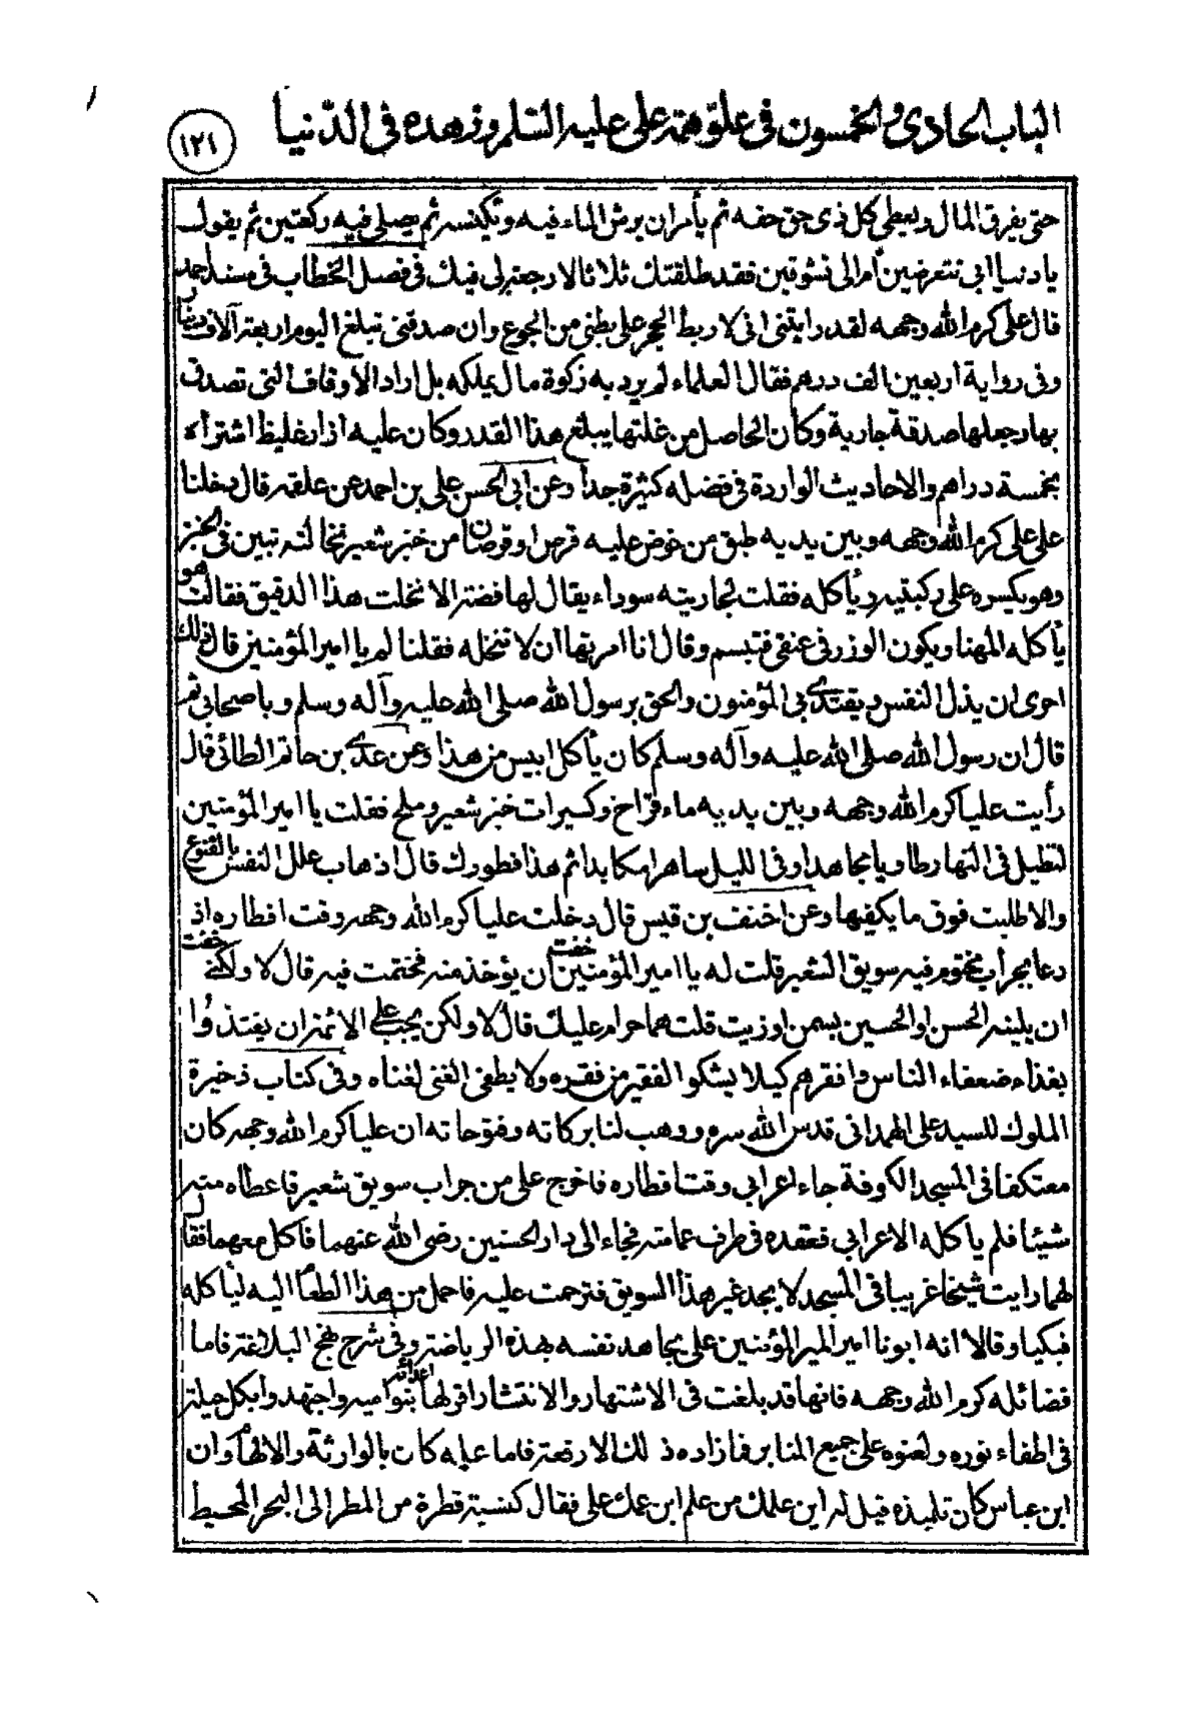 الباب الحادى والخمسون فى علوّ همة على عليه السلام وزهده فى الدّنيا
١٢١
حتى يفرق المال ويعطى كل ذى حق حقه ثم يأمر ان يرش الماء فيه ويكنسه ثم يصلى فيه ركعتين ثم يقول
يا دنيا ابى تتعرضين أم الى تشوقين فقد طلقتك ثلاثا لا رجعة لى فيك فى فصل الخطاب فى مسند احمد
قال على كرم الله وجهه لقد رايتنى انى لاربط الحجر على بطنى من الجوع وان صدقتى تبلغ اليوم اربعة آلاف دينار
وفى رواية اربعين الف درهم فقال العلماء لم يرد به زكوة مال يملكه بل اراد الاوقاف التى تصدق
بها وجعلها صدقة جارية وكان الحاصل من غلتها يبلغ هذا القدر وكان عليه ازار غليظ اشتراه
بخمسة دراهم والاحاديث الواردة فى فضله كثيرة جداً وعن ابى الحسن على بن احمد عن علقمة قال دخلنا
على على كرم الله وجهه وبين يديه طبق من خوص عليه قرص او قرصان من خبز شعير نخالته تبين فى الخبز
وهو يكسره على ركبتيه ويأكله فقلت لجاريته سوداء يقال لها فضة الا نخلت هذا الدقيق فقالت هو
يأكله المهنا ويكون الوزر فى عنقى فتبسم وقال انا امرتها ان لا تنخله فقلنا لم يا امير المؤمنين قال ذلك
احرى ان يذل النفس ويقتدى بى المؤمنون والحق برسول الله صلى الله عليه وآله وسلم وباصحابى ثم
قال ان رسول الله صلى الله عليه وآله وسلم كان يأكل ايبس من هذا وعن عدى بن حاتم الطائى قال
رأيت عليا كرم الله وجهه وبين يديه ماء قراح وكسيرات خبز شعير وملح فقلت يا امير المؤمنين
لتظل فى النهار طاويا مجاهدا وفى الليل ساهرا مكابدا ثم هذا فطورك قال اذهاب علل النفس بالقنوع
والا طلبت فوق ما يكفيها وعن احنف بن قيس قال دخلت عليا كرم الله وجهه وقت افطاره اذ
دعا بجراب مختوم فيه سويق الشعير قلت له يا امير المؤمنين خفت أن يؤخذ منه فختمت فيه قال لا ولكنى خفت
ان يلينه الحسن او الحسين بسمن او زيت قلت هما حرام عليك قال لا ولكن يجب على الائمة ان يغتذوا
بغذاء ضعفاء الناس وافقرهم كيلا يشكو الفقير من فقره ولا يطغى الغنى لغناه وفى كتاب ذخيرة
الملوك للسيد على الهمدانى قدس الله سره ووهب لنا بركاته وفتوحاته ان عليا كرم الله وجهه كان
معتكفا فى المسجد الكوفة جاء اعرابى وقت افطاره فاخرج على من جراب سويق شعير فاعطاه منه
شيئا فلم يأكله الاعرابى فعقده فى طرف عمامته فجاء الى دار الحسنين رضى الله عنهما فاكل معهما فقال
لهما رايت شيخا غريبا فى المسجد لا يجد غير هذا السويق فترحمت عليه فاحمل من هذا الطعام اليه ليأكله
فبكيا وقالا انه ابونا امير المؤمنين على يجاهد نفسه بهذه الرياضة وفى شرح نهج البلاغة فاما
فضائله كرم الله وجهه فانها قد بلغت فى الاشتهار والانتشار اقر لها اعدائه بنو اميه واجتهدوا بكل حيلة
فى اطفاء نوره ولعنوه على جميع المنابر فما زاده ذلك الا رفعة فاما علمه كان بالوراثة والالهام وان
ابن عباس كان تلميذه قيل له اين علمك من علم ابن عمك على فقال كنسبة قطرة من المطر الى البحر المحيط